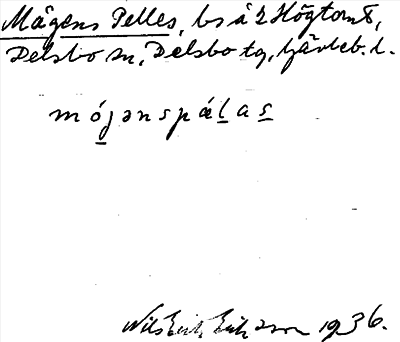 Mågens Pelles, bs å 2 Högtomt,
Delsbo sn, Delsbo tg, Gävleb. l.
mójənspǽlas
Nils Erik Eriksson 1936.